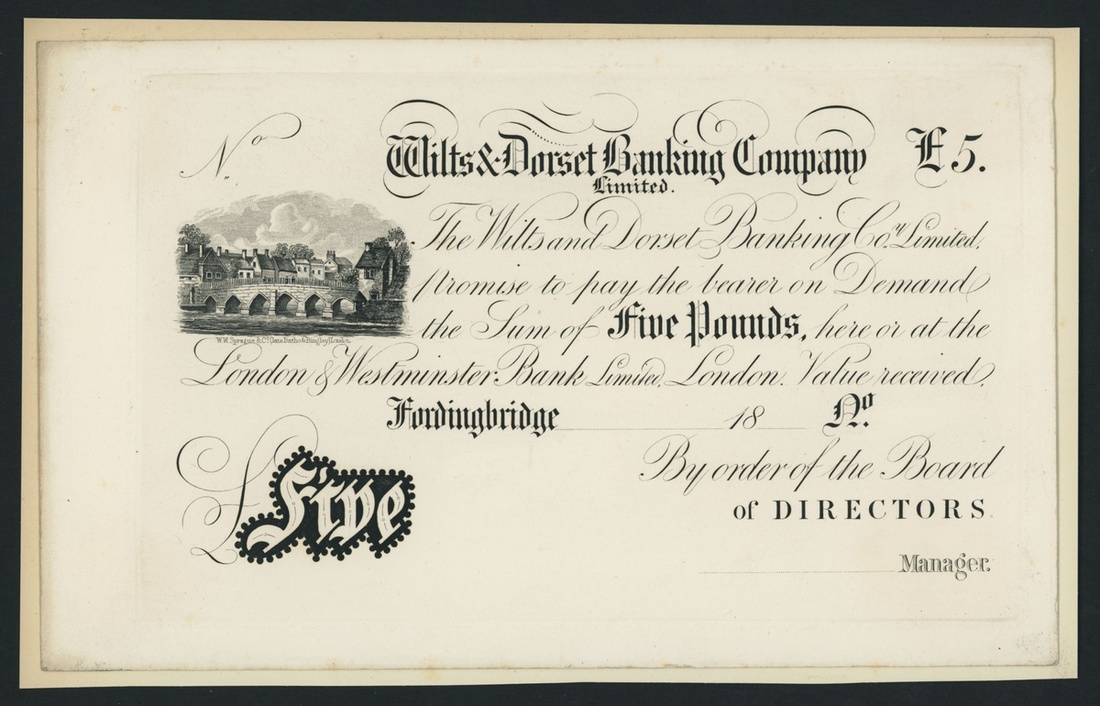 No
Wilts & Dorset Banking Company £5.
Limited.
The Wilts and Dorset Banking Co.y Limited,
promise to pay the bearer on Demand
the Sum of Five Pounds, here or at the
W.W. Sprague & Co. (late Batho & Bingley) London.
London & Westminster Bank Limited, London. Value received,
Fordingbridge 18 No.
By order of the Board
£Five
of DIRECTORS.
Manager.